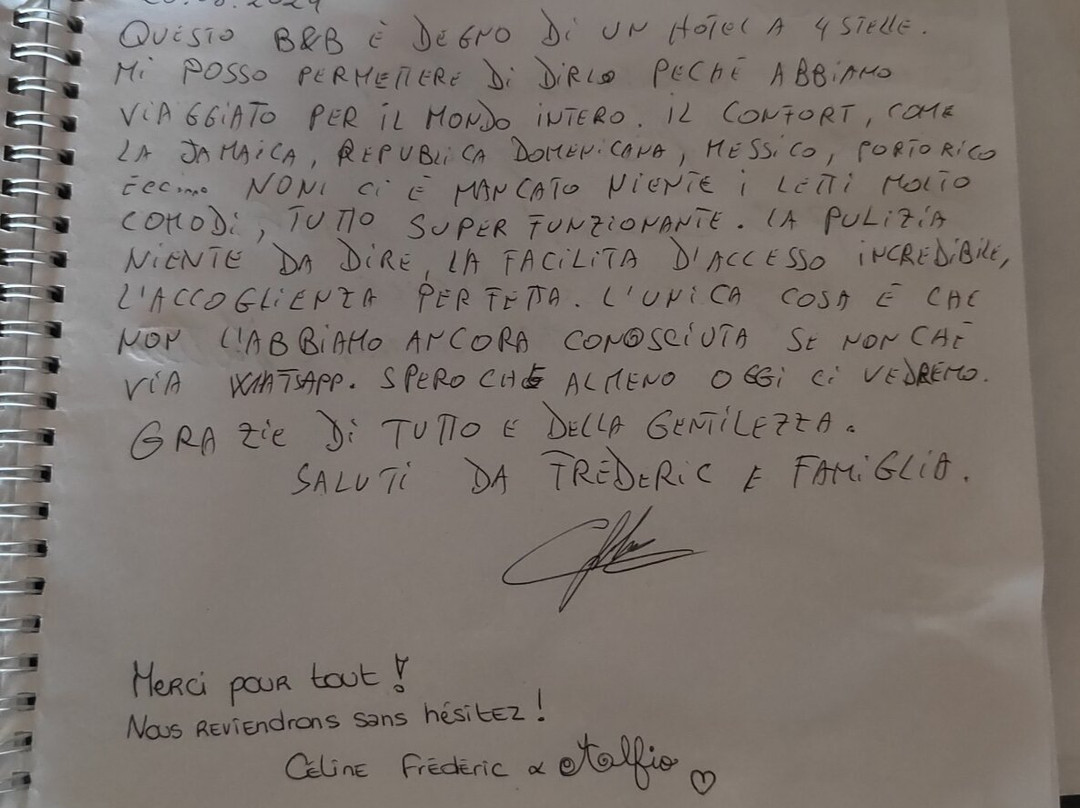 QUESTO B&B È DEGNO DI UN HOTEL A 4 STELLE.
MI POSSO PERMETTERE DI DIRLO PECHÉ ABBIAMO
VIAGGIATO PER IL MONDO INTERO. IL CONFORT, COME
LA JAMAICA, REPUBLICA DOMENICANA, MESSICO, PORTORICO
ECC.... NON CI È MANCATO NIENTE I LETTI MOLTO
COMODI, TUTTO SUPER FUNZIONANTE. LA PULIZIA
NIENTE DA DIRE, LA FACILITA D'ACCESSO INCREDIBILE,
L'ACCOGLIENZA PERFETTA. L'UNICA COSA È CHE
NON L'ABBIAMO ANCORA CONOSCIUTA SE NON CHÉ
VIA WHATSAPP. SPERO CHE ALMENO OGGI CI VEDREMO.
GRAZIE DI TUTTO E DELLA GENTILEZZA.
SALUTI DA FRÉDERIC E FAMIGLIA.
Merci pour tout !
Nous reviendrons sans hésitez !
Céline Frédéric & Talfio ♡